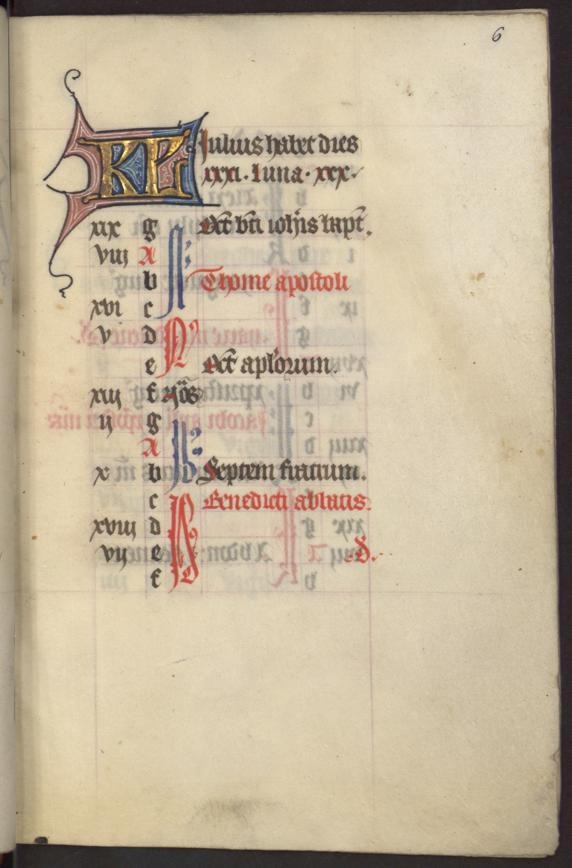 6
KL Iulius habet dies
xxxi. Luna. xxx.
xix g Oct̄ bt̄i ioh̄is bapt̄.
viii A
b Thome apostoli
xvi c
v d N
e Oct̄ ap̄lorum.
xiii f
ii g
A
x b Septem fratrum.
c Benedicti abbatis.
xviii d
vii e
f